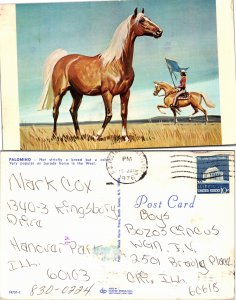 PALOMINO - Not strictly a breed but a color.
Very popular as parade horse in the West.
Mark Cox
1340-3 Kingsbury
Drive
Hanovar Park
Ill.
60103
830-0774
PM
1976
10c
Post Card
Boys
Bozos Circus
WGN T.V.
2501 Bradley Place
Chi, Ill
60618